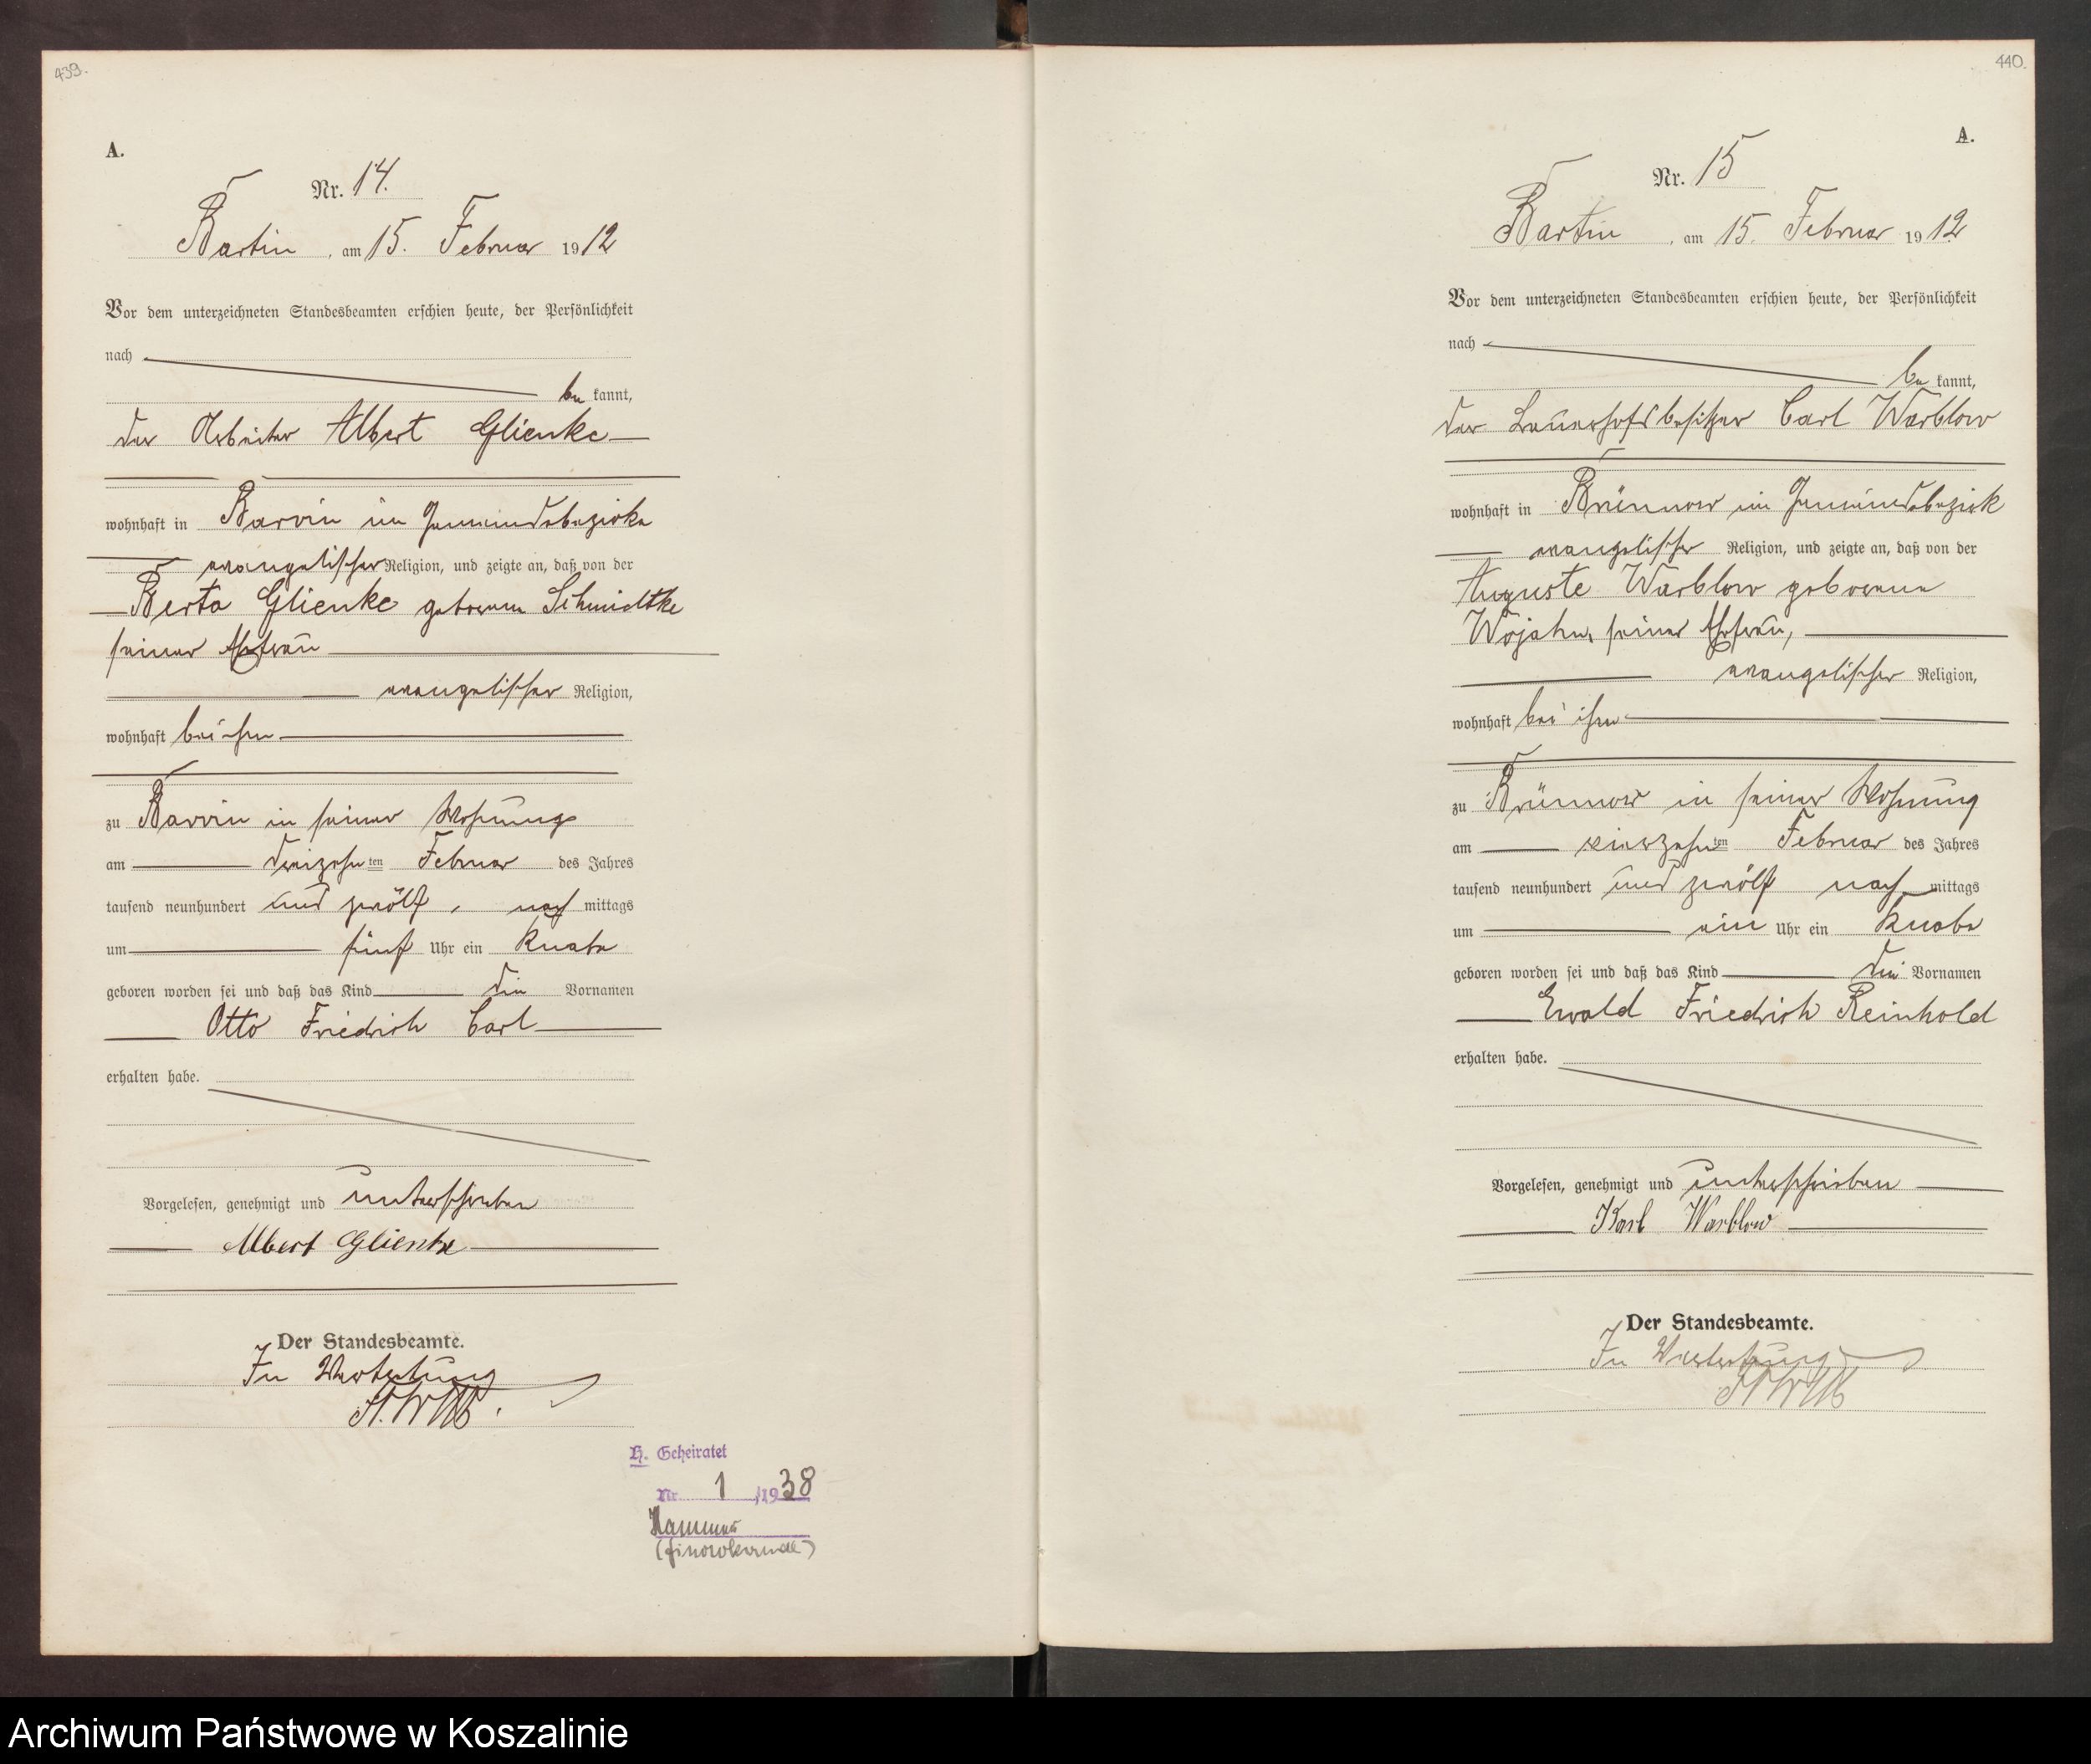 439.
A.
Nr. 14.
Bartin, am 15. Februar 1912
Vor dem unterzeichneten Standesbeamten erschien heute, der Persönlichkeit
nach
be kannt,
der Arbeiter Albert Glienke
wohnhaft in Barvin im Gemeindebezirke
evangelischer Religion, und zeigte an, daß von der
Berta Glienke geborenen Schmidtke
seiner Ehefrau
evangelischer Religion,
wohnhaft bei ihm
zu Barvin in seiner Wohnung
am dreizehnten Februar des Jahres
tausend neunhundert und zwölf, nach mittags
um fünf Uhr ein Knabe
geboren worden sei und daß das Kind die Vornamen
Otto Friedrich Carl
erhalten habe.
Vorgelesen, genehmigt und unterschrieben
Albert Glienke
Der Standesbeamte.
In Vertretung
H. Geheiratet
Nr. 1 /1938
Hammer
(Finowkanal)
440.
A.
Nr. 15
Bartin, am 15. Februar 1912
Vor dem unterzeichneten Standesbeamten erschien heute, der Persönlichkeit
nach
be kannt,
der Bauerhofsbesitzer Carl Warblow
wohnhaft in Brünnow im Gemeindebezirk
evangelischer Religion, und zeigte an, daß von der
Auguste Warblow geborene
Wojahn, seiner Ehefrau,
evangelischer Religion,
wohnhaft bei ihm
zu Brünnow in seiner Wohnung
am vierzehnten Februar des Jahres
tausend neunhundert und zwölf nach mittags
um ein Uhr ein Knabe
geboren worden sei und daß das Kind die Vornamen
Ewald Friedrich Reinhold
erhalten habe.
Vorgelesen, genehmigt und unterschrieben
Karl Warblow
Der Standesbeamte.
In Vertretung
Archiwum Państwowe w Koszalinie